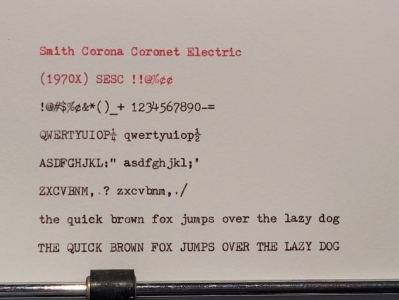 Smith Corona Coronet Electric
(1970X) SESC !!@%¢¢
!@#$%¢&*()_+ 1234567890-=
QWERTYUIOP¼ qwertyuiop½
ASDFGHJKL:" asdfghjkl;'
ZXCVBNM,.? zxcvbnm,./
the quick brown fox jumps over the lazy dog
THE QUICK BROWN FOX JUMPS OVER THE LAZY DOG